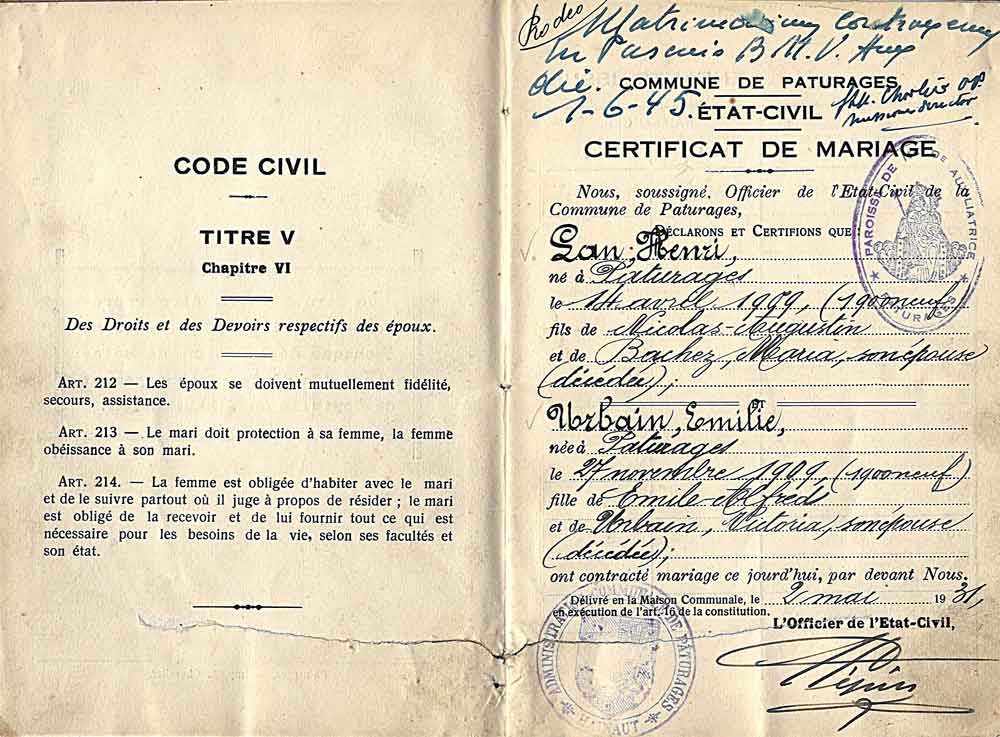 CODE CIVIL
TITRE V
Chapitre VI
Des Droits et des Devoirs respectifs des époux.
ART. 212 — Les époux se doivent mutuellement fidélité,
secours, assistance.
ART. 213 — Le mari doit protection à sa femme, la femme
obéissance à son mari.
ART. 214. — La femme est obligée d'habiter avec le mari
et de le suivre partout où il juge à propos de résider ; le mari
est obligé de la recevoir et de lui fournir tout ce qui est
nécessaire pour les besoins de la vie, selon ses facultés et
son état.
Matrimonium
B M V Aux
die 1-6-45.
COMMUNE DE PATURAGES
ÉTAT-CIVIL
CERTIFICAT DE MARIAGE
PAROISSE DE AUXILIATRICE
PATURAGES
Nous, soussigné, Officier de l'Etat-Civil de la
Commune de Paturages,
DÉCLARONS ET CERTIFIONS QUE
Lan, Henri,
né à Paturages
le 14 avril 1909, (1900neuf)
fils de Nicolas-Augustin
et de Bachez, Maria, son épouse
(décédée);
ET
Urbain, Emilie,
née à Paturages
le 27 novembre 1909, (1900neuf)
fille de Emile-Alfred
et de Urbain, Victoria, son épouse
(décédée);
ont contracté mariage ce jourd'hui, par devant Nous.
Délivré en la Maison Communale, le 2 mai 1931,
en exécution de l'art. 16 de la constitution.
L'Officier de l'Etat-Civil,
ADMINISTRATION COMMUNALE DE PÂTURAGES
HAINAUT